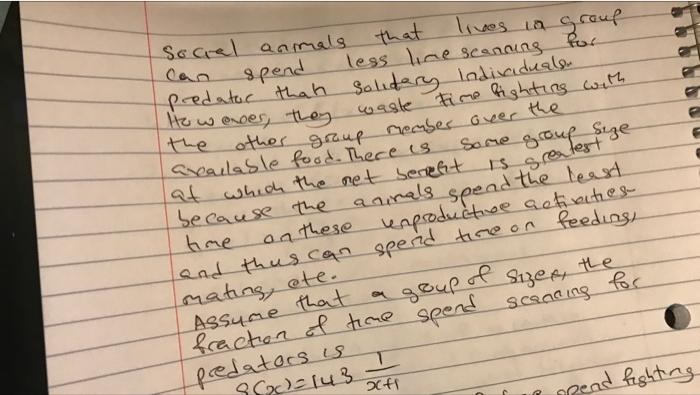 Social animals that lives in group
can spend less time scanning for
predator than Solidary Individuals.
However, they waste time fighting with
the other group member over the
available food. There is some group size
at which the net benefit is greatest
because the animals spend the least
time on these unproductive activities
and thus can spend time on feeding,
mating, etc.
Assume that a group of size x, the
fraction of time spend scanning for
predators is
S(x)=143 1/(x+1)
spend fighting